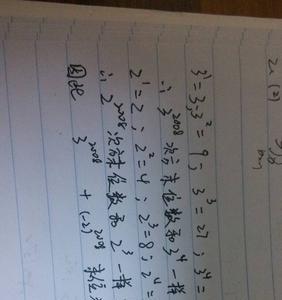 2. (2)
3¹=3; 3²=9; 3³=27; 3⁴=
∴ 3²⁰⁰⁸次方末位数和3⁴一样
2¹=2; 2²=4; 2³=8; 2⁴=
∴ 2²⁰⁰⁸次方末位数和2³一样
因此 3²⁰⁰⁸+(-2)²⁰⁰⁸末位